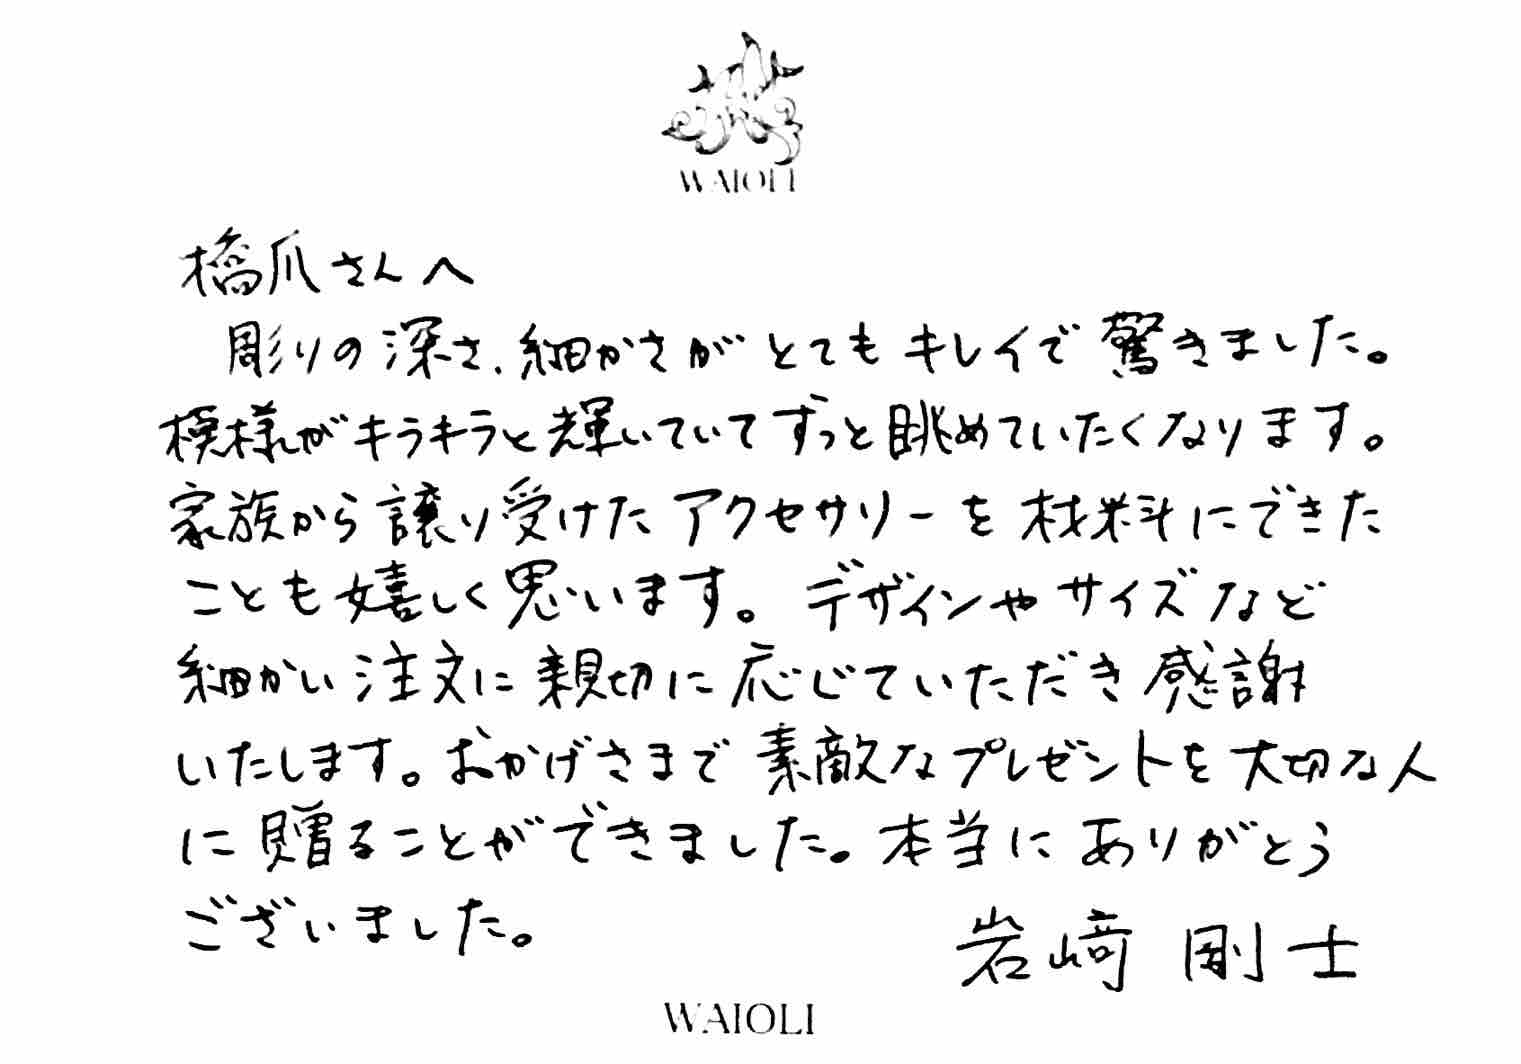 WAIOLI
橋爪さんへ
彫りの深さ、細かさがとてもキレイで驚きました。
模様がキラキラと輝いていてずっと眺めていたくなります。
家族から譲り受けたアクセサリーを材料にできた
ことも嬉しく思います。デザインやサイズなど
細かい注文に親切に応じていただき感謝
いたします。おかげさまで素敵なプレゼントを大切な人
に贈ることができました。本当にありがとう
ございました。
岩﨑 剛士
WAIOLI